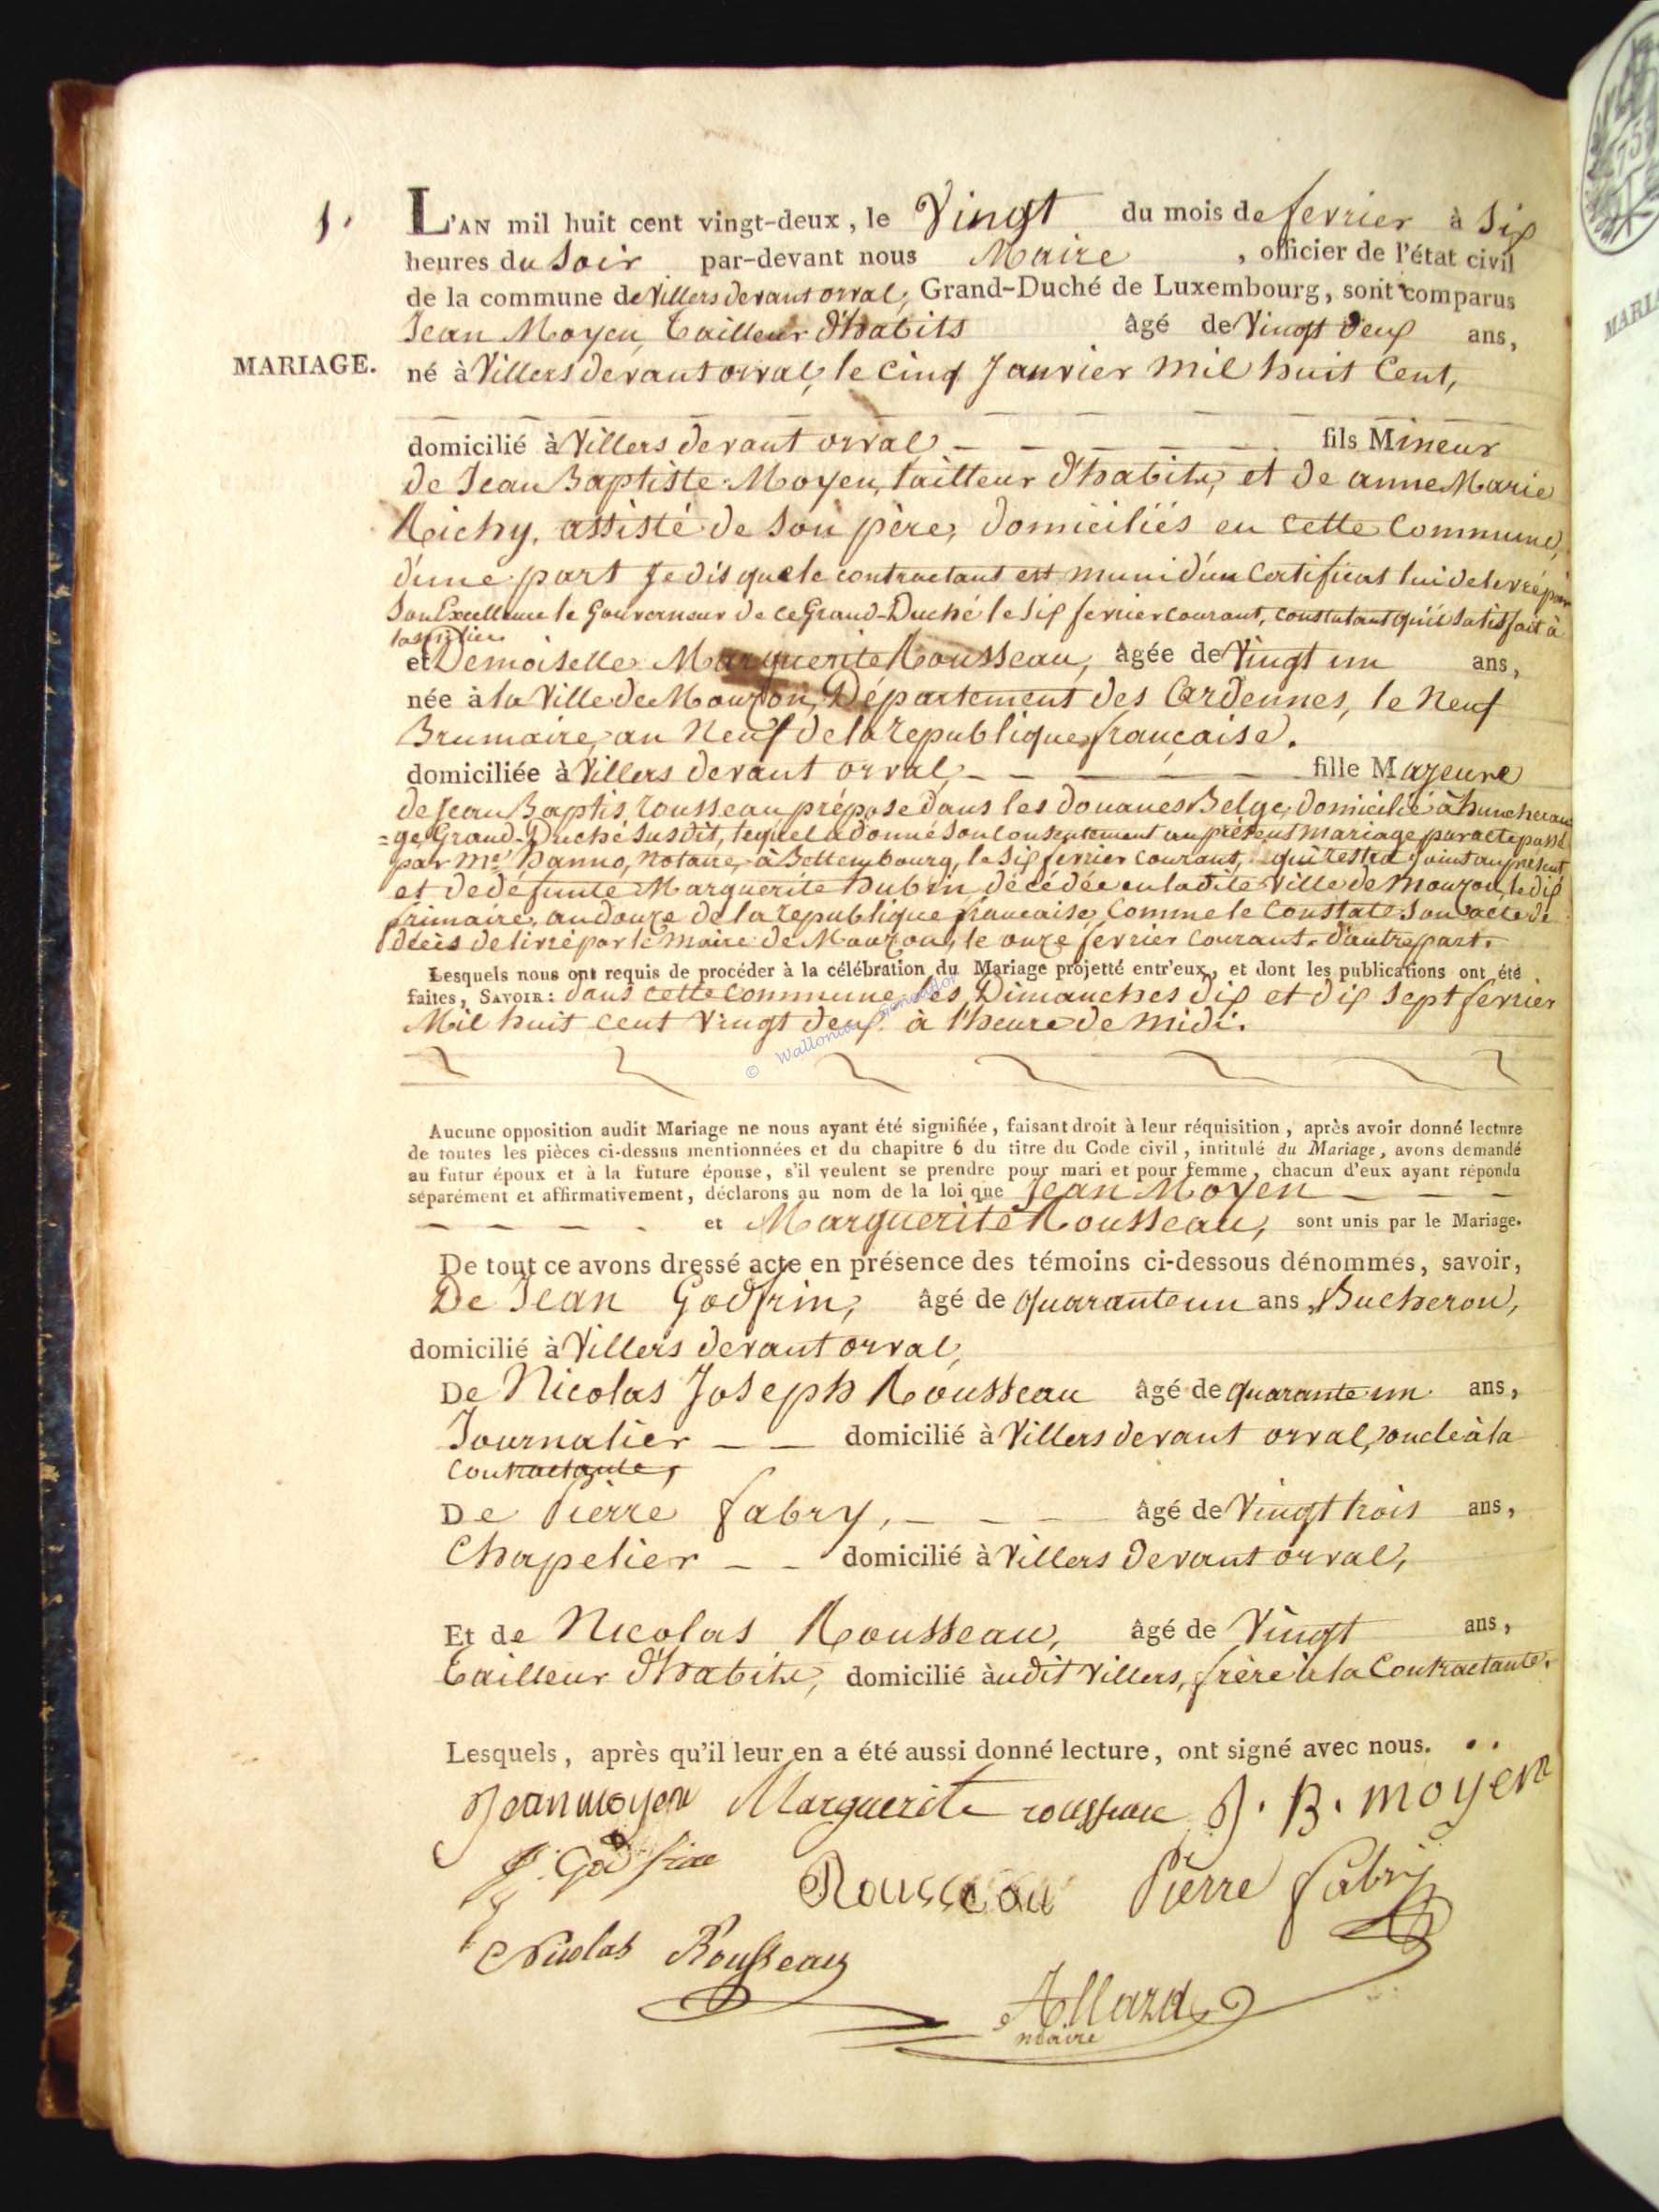 1.
L'AN mil huit cent vingt-deux, le Vingt du mois de fevrier à Six
heures du Soir par-devant nous Maire , officier de l'état civil
de la commune de Villers devant orval, Grand-Duché de Luxembourg, sont comparus
Jean Moyen, tailleur d'habits âgé de Vingt deux ans,
MARIAGE.
né à Villers devant orval, le cinq Janvier mil huit Cent,
domicilié à Villers devant orval, fils Mineur
de Jean Baptiste Moyen, tailleur d'habits, et de anne Marie
Richy, assisté de Son père, domiciliés en cette Commune,
d'une part Je dis que le contractant est muni d'un Certificat lui delivré par
Son Excellence le Gouverneur de ce Grand-Duché le Six fevrier courant, constatant qu'il Satisfait à
la milice
et Demoiselle Marguerite Rousseau, âgée de Vingt un ans,
née à la Ville de Mouzon, Département des Ardennes, le Neuf
Brumaire, an Neuf de la republique française.
domiciliée à Villers devant orval, fille Majeure
de Jean Baptis, rousseau préposé dans les douanes Belge, domicilié à huncheran
=ge, Grand-Duché Susdit, lequel a donné Son Consentement au présent mariage par acte passé
par Me. hanno, Notaire, à Bettembourg, le Six fevrier courant, qui restra Joint au présent,
et de defunte Marguerite hubin décédée en la dite Ville de mouzon, le dix
frimaire, an douze de la republique française, Comme le Constate Son acte de
décès delivré par le maire de Mouzon, le onze fevrier courant. d'autre part.
Lesquels nous ont requis de procéder à la célébration du Mariage projetté entr'eux, et dont les publications ont été
faites, SAVOIR: dans cette commune les Dimanches dix et dix Sept fevrier
Mil huit cent Vingt deux à l'heure de midi.
© Wallonia
Aucune opposition audit Mariage ne nous ayant été signifiée, faisant droit à leur réquisition, après avoir donné lecture
de toutes les pièces ci-dessus mentionnées et du chapitre 6 du titre du Code civil, intitulé du Mariage, avons demandé
au futur époux et à la future épouse, s'il veulent se prendre pour mari et pour femme, chacun d'eux ayant répondu
séparément et affirmativement, déclarons au nom de la loi que Jean Moyen
et Marguerite Rousseau, sont unis par le Mariage.
De tout ce avons dressé acte en présence des témoins ci-dessous dénommés, savoir,
De Jean Godfrin, âgé de quarante un ans, Bucheron,
domicilié à Villers devant orval,
De Nicolas Joseph Rousseau âgé de quarante un ans,
Journalier domicilié à Villers devant orval, oncle à la
Contractante,
De Pierre fabry, âgé de Vingt trois ans,
Chapelier domicilié à Villers devant orval,
Et de Nicolas Rousseau, âgé de Vingt ans,
tailleur d'habits, domicilié àudit Villers, frère à la Contractante.
Lesquels, après qu'il leur en a été aussi donné lecture, ont signé avec nous.
Jean moyen Marguerite rousseau J. B. moyen
J. Godfrin Rousseau Pierre fabry
Nicolas Rousseau
Allard
maire
MARIA